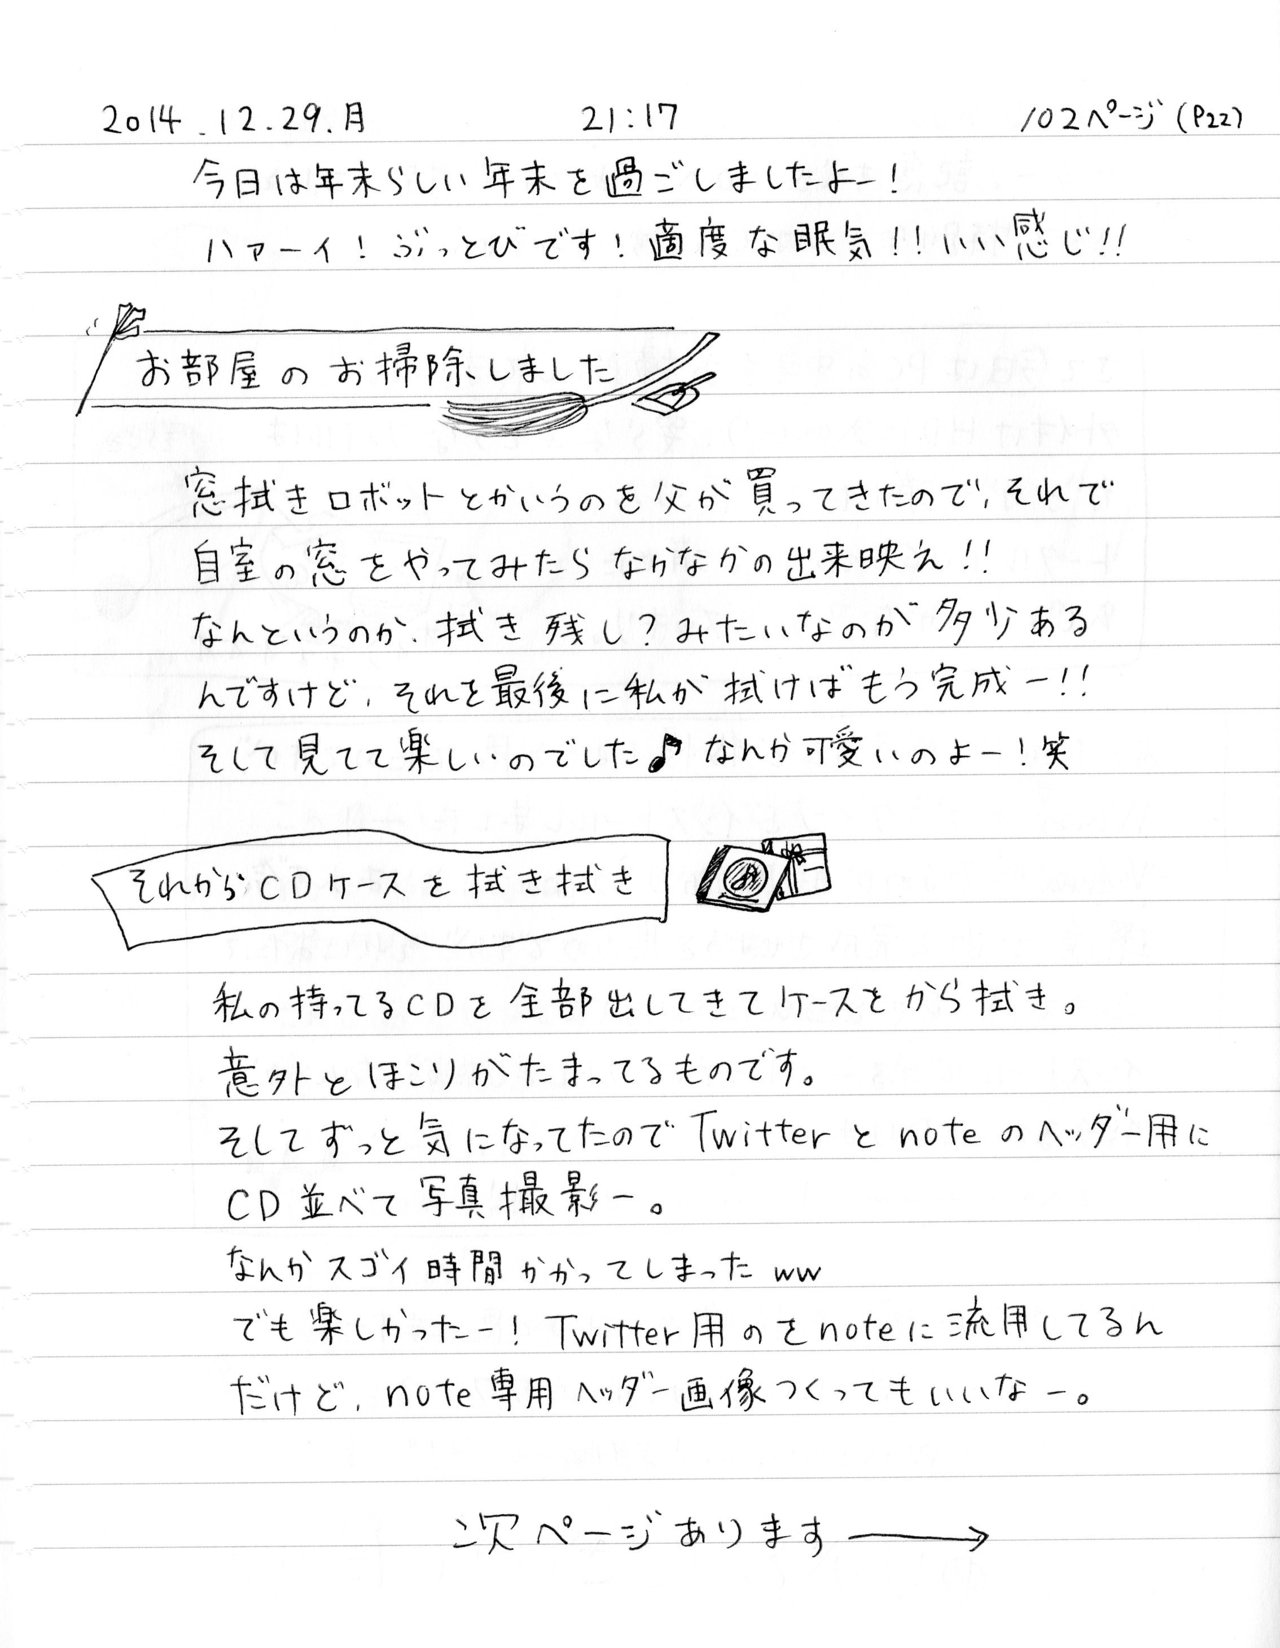 2014.12.29.月 21:17 102ページ(P22)
今日は年末らしい年末を過ごしましたよー!
ハァーイ!ぶっとびです!適度な眠気!!いい感じ!!
お部屋のお掃除しました
窓拭きロボットとかいうのを父が買ってきたので、それで
自室の窓をやってみたらなかなかの出来映え!!
なんというのか、拭き残し?みたいなのが多少ある
んですけど、それを最後に私が拭けばもう完成ー!!
そして見てて楽しいのでした♪なんか可愛いのよー!笑
それからCDケースを拭き拭き
私の持ってるCDを全部出してきてケースをから拭き。
意外とほこりがたまってるものです。
そしてずっと気になってたのでTwitterとnoteのヘッダー用に
CD並べて写真撮影ー。
なんかスゴイ時間かかってしまったww
でも楽しかったー!Twitter用のをnoteに流用してるん
だけど、note専用ヘッダー画像つくってもいいなー。
次ページあります→